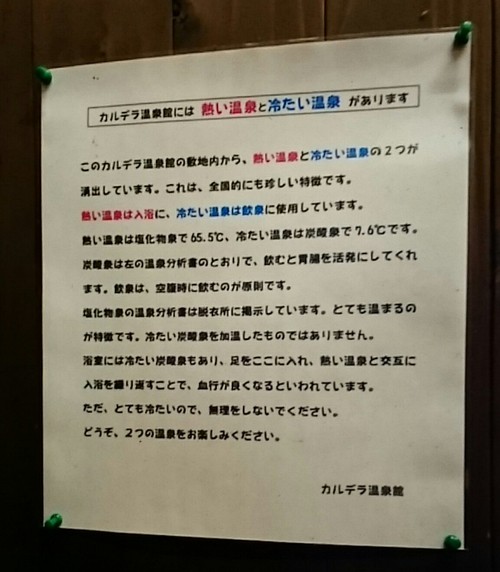 カルデラ温泉館には 熱い温泉と冷たい温泉 があります
このカルデラ温泉館の敷地内から、熱い温泉と冷たい温泉の２つが
湧出しています。これは、全国的にも珍しい特徴です。
熱い温泉は入浴に、冷たい温泉は飲泉に使用しています。
熱い温泉は塩化物泉で65.5℃、冷たい温泉は炭酸泉で7.6℃です。
炭酸泉は左の温泉分析書のとおりで、飲むと胃腸を活発にしてくれ
ます。飲泉は、空腹時に飲むのが原則です。
塩化物泉の温泉分析書は脱衣所に掲示しています。とても温まるの
が特徴です。冷たい炭酸泉を加温したものではありません。
浴室には冷たい炭酸泉もあり、足をここに入れ、熱い温泉と交互に
入浴を繰り返すことで、血行が良くなるといわれています。
ただ、とても冷たいので、無理をしないでください。
どうぞ、２つの温泉をお楽しみください。
カルデラ温泉館